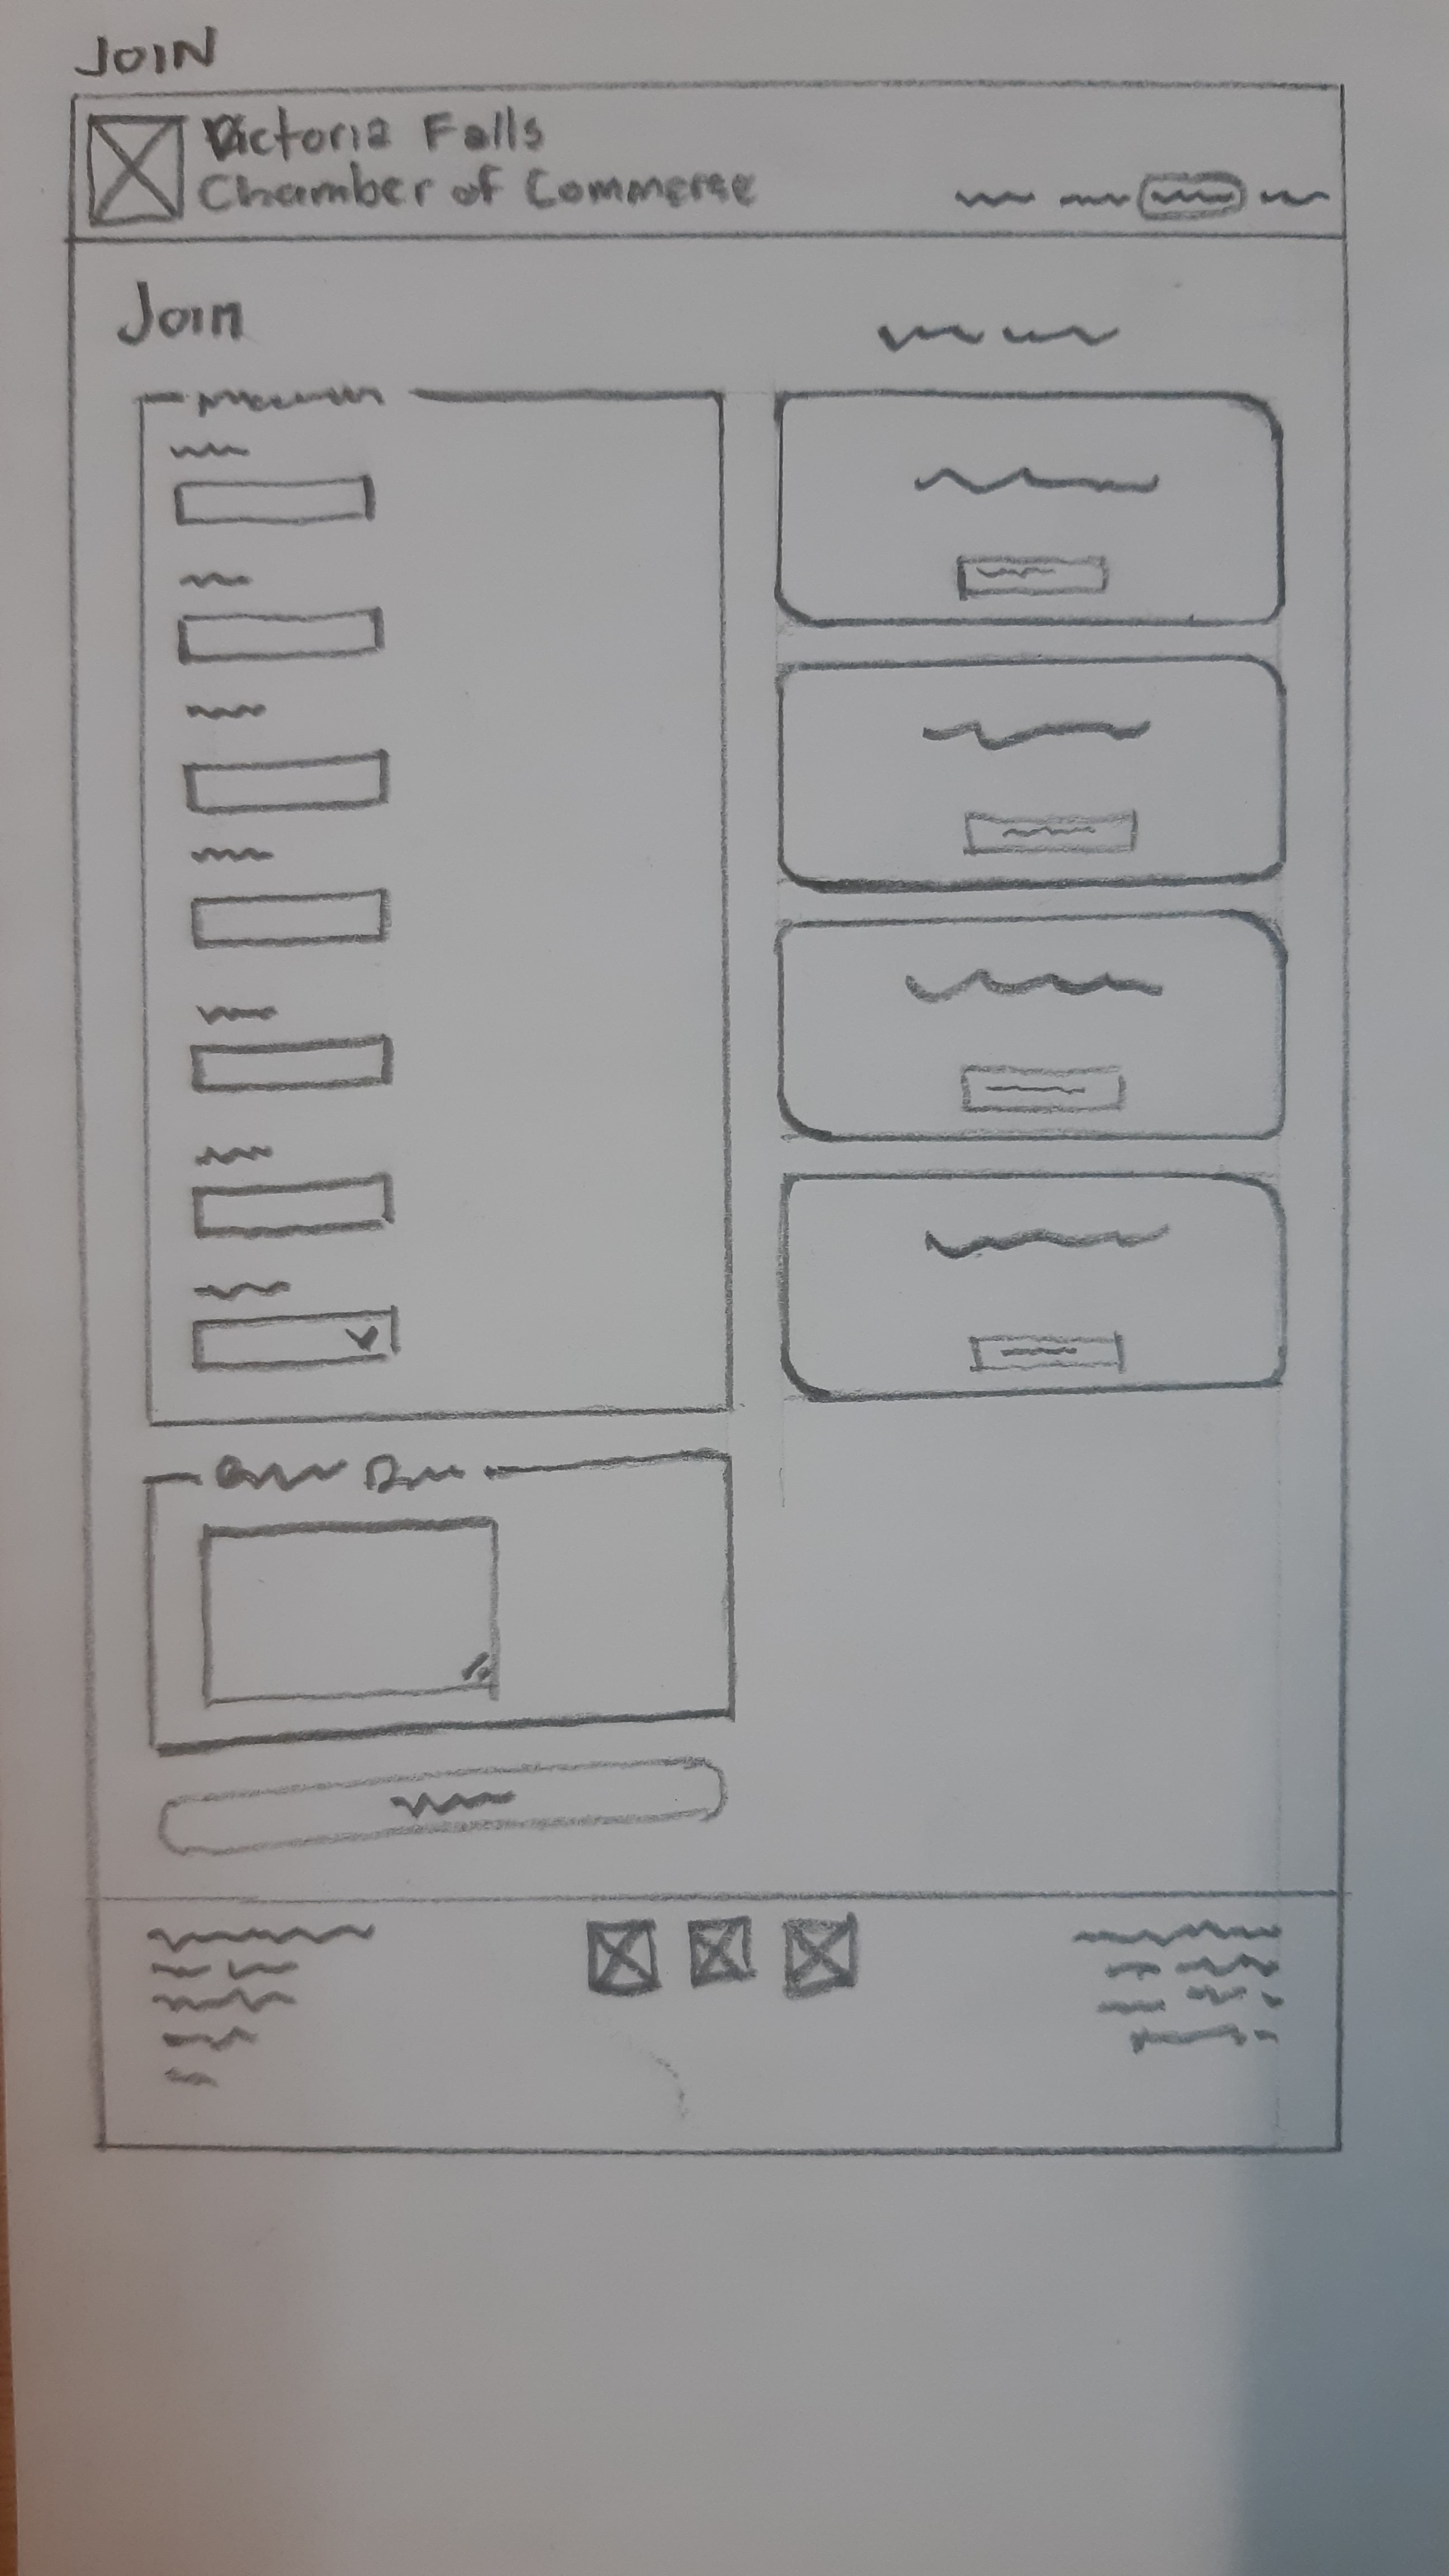 JOIN
Victoria Falls
Chamber of Commerse
Join